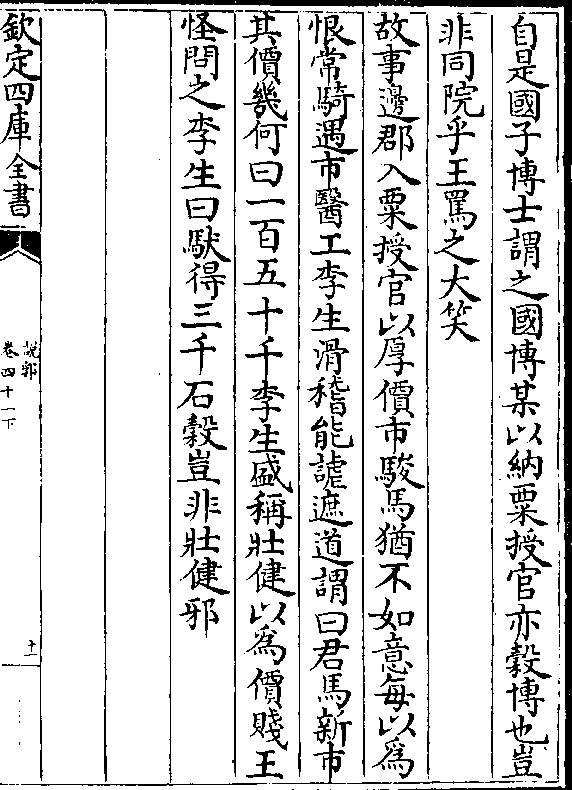 自是國子博士謂之國博某以納粟授官亦穀博也豈
非同院乎王罵之大笑
故事邊郡入粟授官以厚價市駿馬猶不如意每以為
恨常騎遇市醫工李生滑稽能謔遮道謂曰君馬新市
其價幾何曰一百五十千李生盛稱壯健以為價賤王
怪問之李生曰馱得三千石穀豈非壯健邪
欽定四庫全書
說郛
卷四十一下
十一